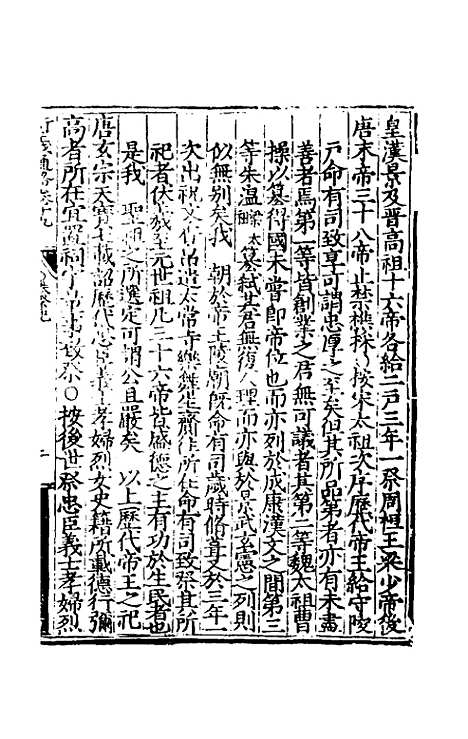 皇漢景及晉高祖十六帝各給二戶三年一祭周桓王梁少帝後
唐末帝三十八帝止禁樵採按宋太祖次序歷代帝王給守陵
戶命有司致享可謂忠厚之至矣但其所品第者亦有未盡
善者焉第一等皆創業之君無可議者其第二等魏太祖曹
操以簒得國未嘗即帝位也而亦列於成康漢文之間第三
等朱温梁太祖簒弑其君無復人理而亦與於景武玄憲之列則
似無別矣我 朝於帝王陵廟既命有司歲時脩葺又於三年一
次出祝文香帛遣太常寺樂舞生齎往所在命有司致祭其所
祀者伏羲至元世祖凡三十六帝皆盛德之主有功於生民者也
是我 聖祖之所選定可謂公且嚴矣 以上歷代帝王之祀
唐玄宗天寶七載詔歷代忠臣義士孝婦烈女史籍所載德行彌
高者所在宜置祠宇 致祭○按後世祭忠臣義士孝婦烈